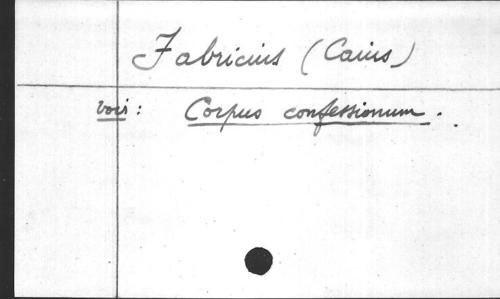 Fabricius (Caius)
voir : Corpus confessionum.